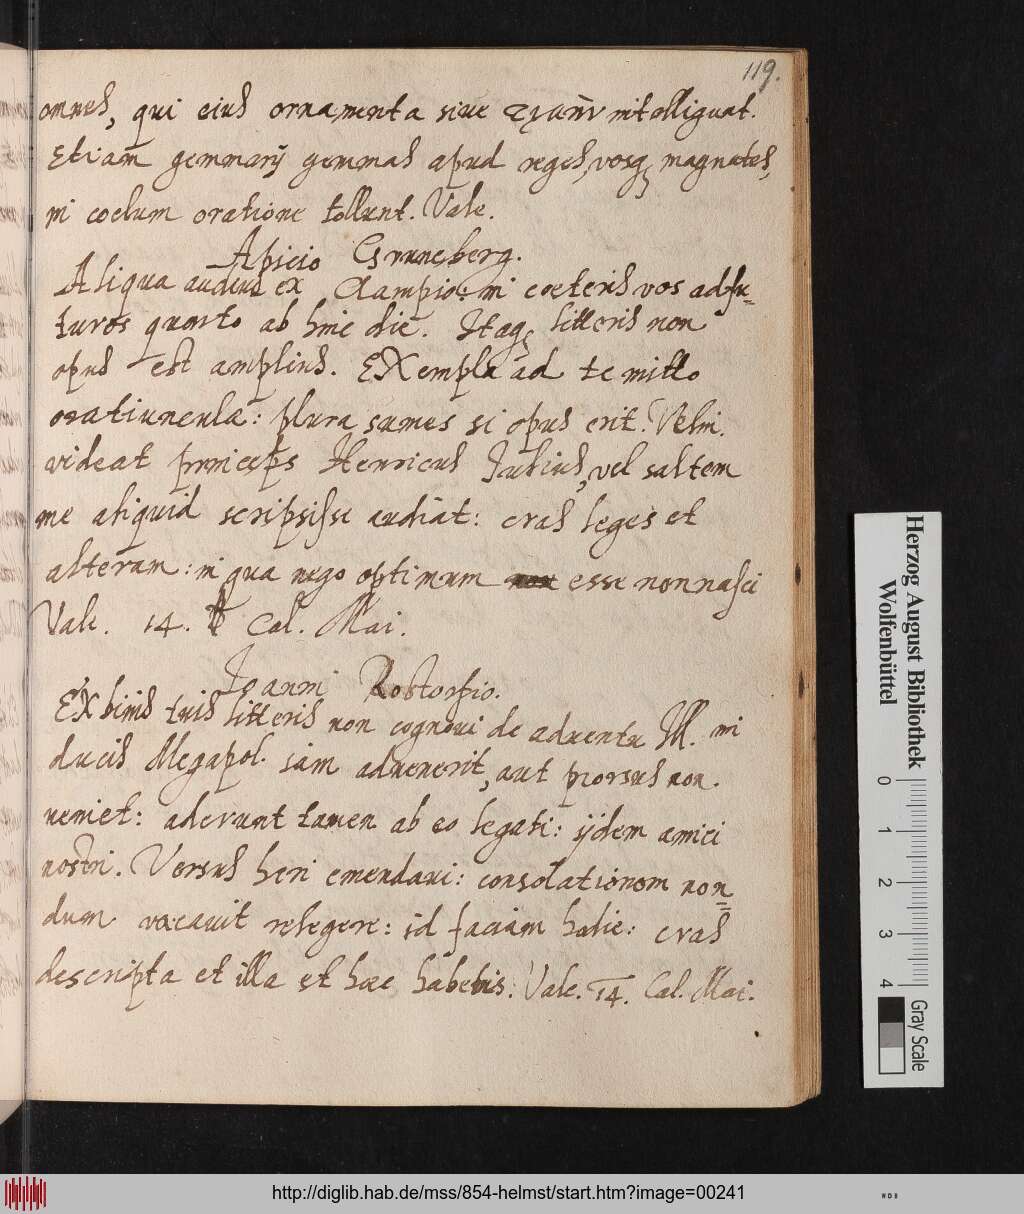 119.
omnes, qui eius ornamenta siue intelliguat.
Etiam gemmarij gemmas apud reges, vosq magnates,
in coelum oratione tollunt. Vale.
Apicio Gruneberg.
Aliqua audies ex Campio: in coeteris vos adfu-
turos quarto ab hinc die. Itaq litteris non
opus est amplius. EXempla ad te mitto
oratiunculæ: plura sumes si opus erit. Velim.
videat princeps Henricus Julius, vel saltem
me aliquid scripsisse audiat: cras leges et
alteram: in qua nego optimum esse non nasci
Vale. 14. Cal. Mai.
Ioanni Rostorfio.
EX binis tuis litteris non cognoui de aduentu Ill. mi
ducis Megapol. iam aduenerit, aut prorsus non.
ueniet: aderunt tamen ab eo legati: ijdem amici
nostri. Versus heri emendaui: consolationem non=
dum vacauit relegere: id faciam hodie: cras
descripta et illa et hæc habebis. Vale. 14. Cal. Mai.
Herzog August Bibliothek
Wolfenbüttel
0 1 2 3 4
Gray Scale
http://diglib.hab.de/mss/854-helmst/start.htm?image=00241
WDB